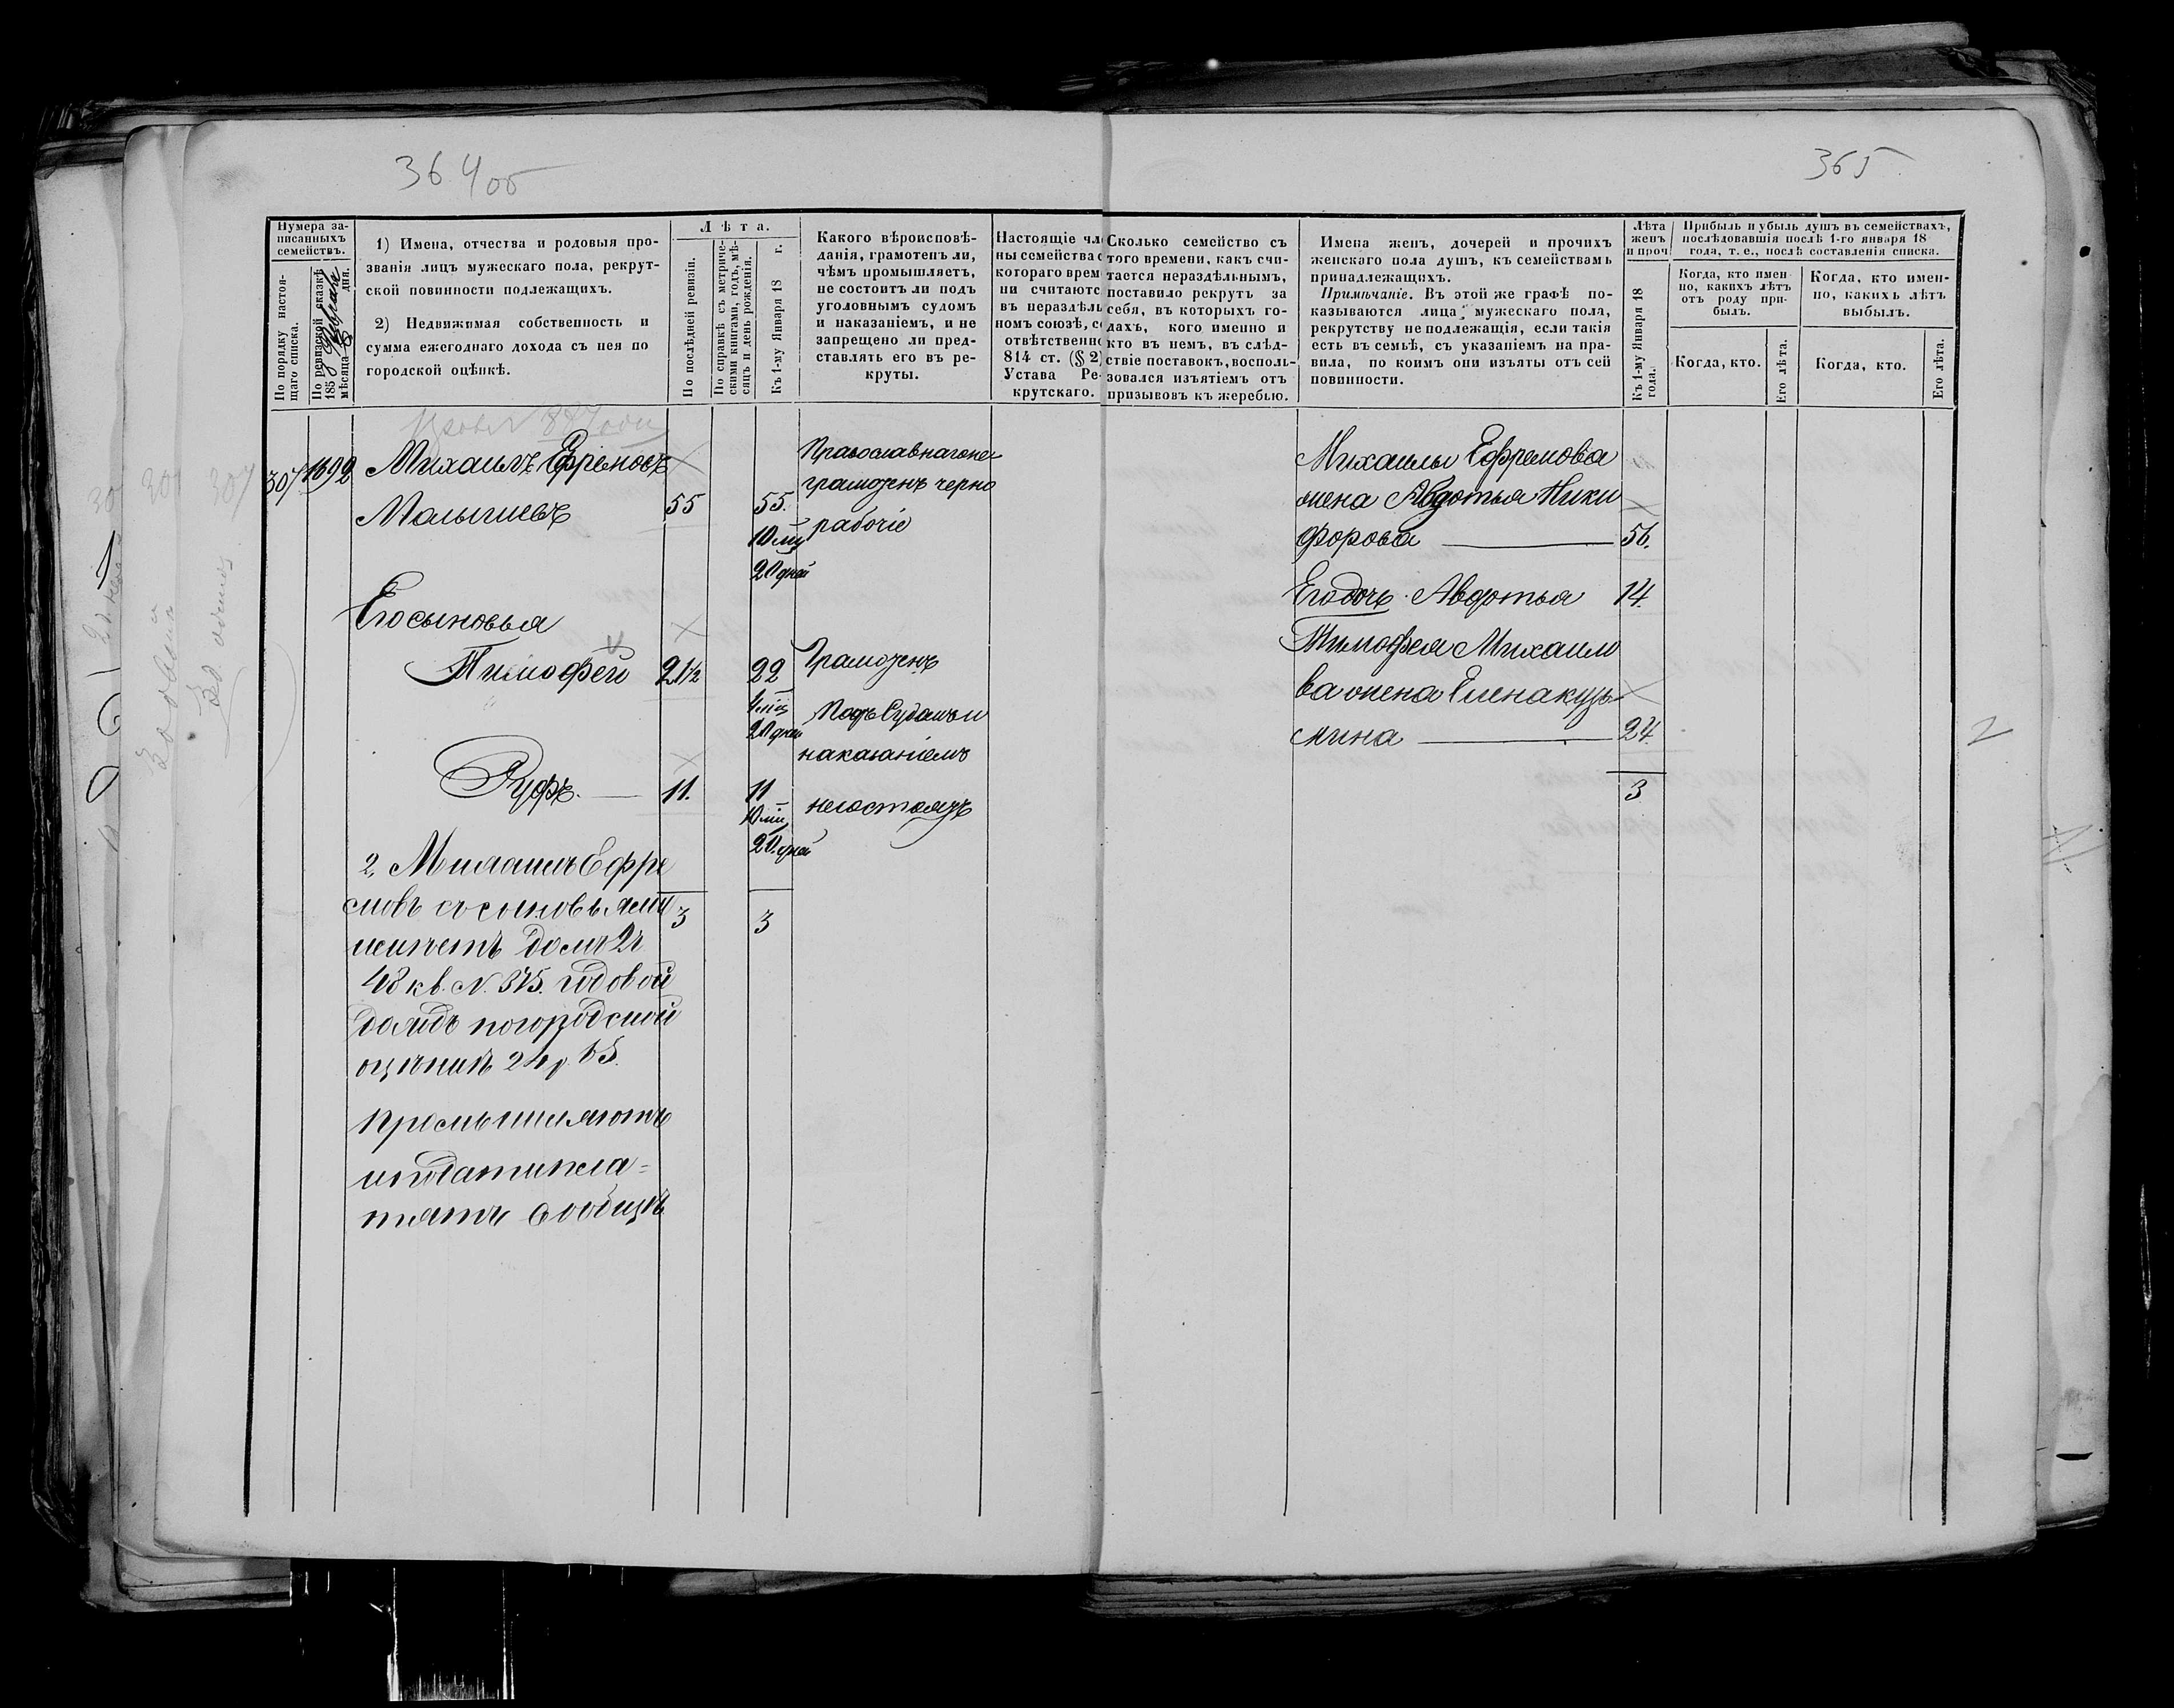 364об
365
Нумера за-
писанныхъ
семействъ.
По порядку настоя-
щаго списка.
По ревизской сказкѣ
185
мѣсяца дня.
1) Имена, отчества и родовыя про-
званія лицъ мужескаго пола, рекрут-
ской повинности подлежащихъ.
2) Недвижимая собственность и
сумма ежегоднаго дохода съ нея по
городской оцѣнкѣ.
Лѣта.
По послѣдней ревизіи.
По справкѣ съ метриче-
скими книгами, годъ, мѣ-
сяцъ и день рожденія.
Къ 1-му Января 18 г.
Какого вѣроисповѣ-
данія, грамотенъ ли,
чѣмъ промышляетъ,
не состоитъ ли подъ
уголовнымъ судомъ
и наказаніемъ, и не
запрещено ли пред-
ставлять его въ ре-
круты.
Настоящіе чл
ны семейства с
котораго врем
ни считаютс
въ нераздѣль
номъ союзѣ, с
отвѣтственно
814 ст. (§ 2)
Устава Ре-
крутскаго.
Сколько семейство съ
того времени, какъ счи-
тается нераздѣльнымъ,
поставило рекрутъ за
себя, въ которыхъ го-
дахъ, кого именно и
кто въ немъ, въ слѣд-
ствіе поставокъ, восполь-
зовался изъятіемъ отъ
призывовъ къ жеребью.
Имена женъ, дочерей и прочихъ
женскаго пола душъ, къ семействамъ
принадлежащихъ.
Примѣчаніе. Въ этой же графѣ по-
казываются лица мужескаго пола,
рекрутству не подлежащія, если такія
есть въ семьѣ, съ указаніемъ на пра-
вила, по коимъ они изъяты отъ сей
повинности.
Лѣта
женъ
и проч
Къ 1-му Января 18
года.
Прибыль и убыль душъ въ семействахъ,
послѣдовавшія послѣ 1-го января 18
года, т. е., послѣ составленія списка.
Когда, кто имен-
но, какихъ лѣтъ
отъ роду при-
былъ.
Когда, кто имен-
но, какихъ лѣтъ
выбылъ.
Когда, кто.
Его лѣта.
Когда, кто.
Его лѣта.
307 1692 Михаилъ Ефремовъ
Малышевъ 55 55.
10 мц
20 дней
Православнаго не
грамотенъ черно
рабочіе
Его сыновья
Тимофей 21½ 22
20 дней
Грамотенъ
Подъ Судомъ и
наказаніемъ
Руфъ. — 11. 11
10 мц
20 дней
несостоятъ
2, Михаилъ Ефре
мовъ съ сыновьями 3 3
имѣетъ домъ 2ч
48 кв. N. 375. годовой
доходъ погородской
оцѣнкѣ
промышляютъ
и податипла=
тятъ вообщѣ
Михаилы Ефремова
жена Авдотья Ники
форова — 56.
Его дочь Авдотья 14.
Тимофея Михаило
ва жена Елена Кузь
мина — 24.
3